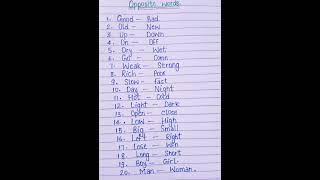 Opposite words.
1. Good — Bad
2. Old — New
3. Up — Down
4. On — OFF
5. Dry — Wet
6. Go —
7. Weak — Strong
8. Rich — Poor
9. Slow — fast
10. Day — Night
11. Hot — Cold
12. Light — Dark
13. Open — close
14. Low — High
15. Big — Small
16. Left — Right
17. Lose — Win
18. Long — Short
19. Boy — Girl.
20. Man — Woman.